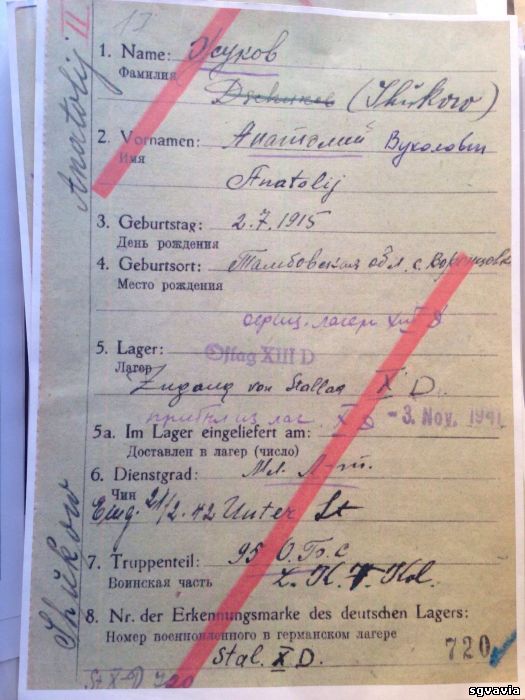 II
13
Anatolij
1. Name: Жуков
Фамилия
Dschukow (Shukow)
2. Vornamen: Анатолий Вуколович
Имя
Anatolij
3. Geburtstag: 2.7.1915
День рождения
4. Geburtsort: Тамбовская обл. с.
Место рождения
офиц. лагерь XIII D
5. Lager: Oflag XIII D
Лагерь
Zugang von Stallag X D.
прибыл из лаг. X D - 3. Nov. 1941
5a. Im Lager eingeliefert am:
Доставлен в лагерь (число)
6. Dienstgrad: Мл. Л-т.
Чин
21/2.42 Unter Lt
7. Truppenteil: 95
Воинская часть
8. Nr. der Erkennungsmarke des deutschen Lagers:
Номер военнопленного в германском лагере
Stal. X D. 720
Shukow
St X-D 720
sgvavia